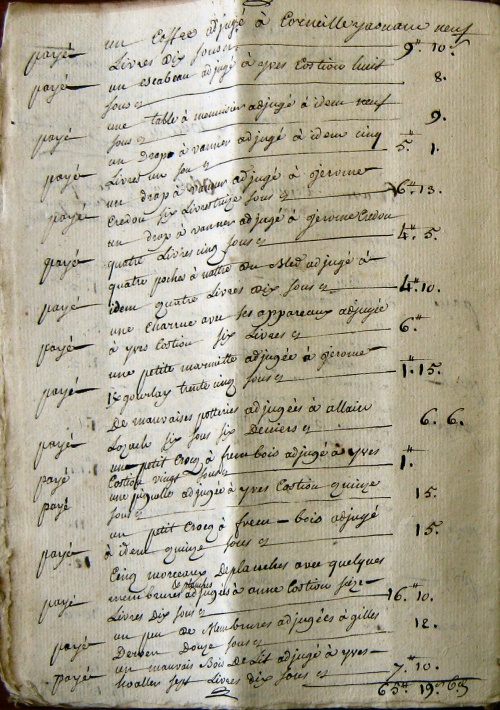 un Coffre adjugé à Corneille jaouanc neuf
payé Livres dix sous 9# 10.
un escabeau adjugé à yves Costiou huit
payé sous 8.
une table à adjugé à idem neuf
payé sous 9.
un drap à vanner adjugé à idem cinq
payé Livres un sou 5# 1.
un drap à vanner adjugé à jerome
payé Credou six Livres treize sous 6# 13.
un drap à vanner adjugé à jerome Credou
payé quatre Livres cinq sous 4# 5.
quatre poches à mettre du Bled adjugé à
payé idem quatre Livres dix sous 4# 10.
une Charrue avec ses appareaux adjugée
payé à yves Costiou six Livres 6#
une petite marmitte adjugée à jerome
payé trente cinq sous 1# 15.
De mauvaises potteries adjugées à allain
payé six sous six Deniers 6. 6.
un petit Crocq à frem bois adjugé à yves
payé Costiou vingt sous 1#
une adjugée à yves Costiou quinze
payé sous 15.
un petit Crocq à frem-bois adjugé
payé à idem quinze sous 15.
Cinq morceaux De planches avec quelques
membrures adjugés à anne Costiou seize
payé Livres Dix sous 16# 10.
un peu de Membrures adjugées à gilles
payé Derven Douze sous 12.
un mauvais Bois De Lit adjugé à yves
payé sept Livres dix sous 7# 10.
63# 19s 6d